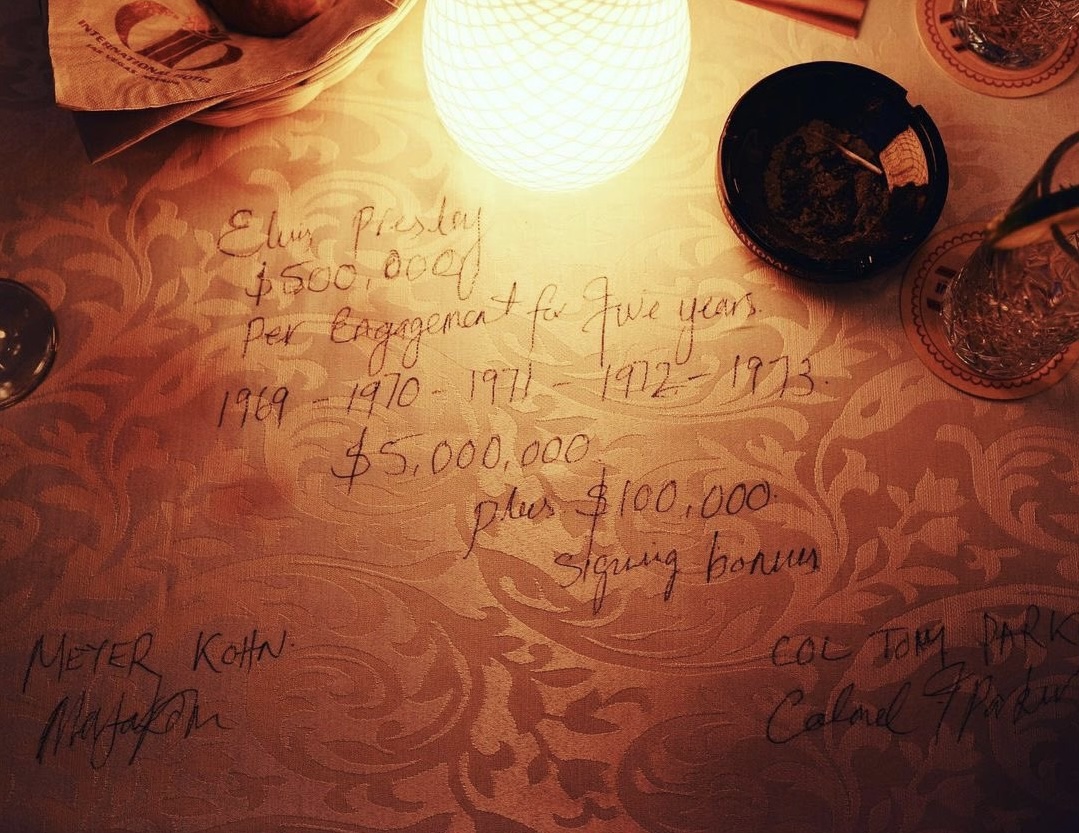 INTERNATIONAL HOTEL
LAS VEGAS, NEVADA
Elvis Presley
$500,000
Per Engagement for Five years.
1969 - 1970 - 1971 - 1972 - 1973.
$5,000,000.
plus $100,000.
signing bonus
MEYER KOHN.
COL TOM PARK
Colonel T Parker